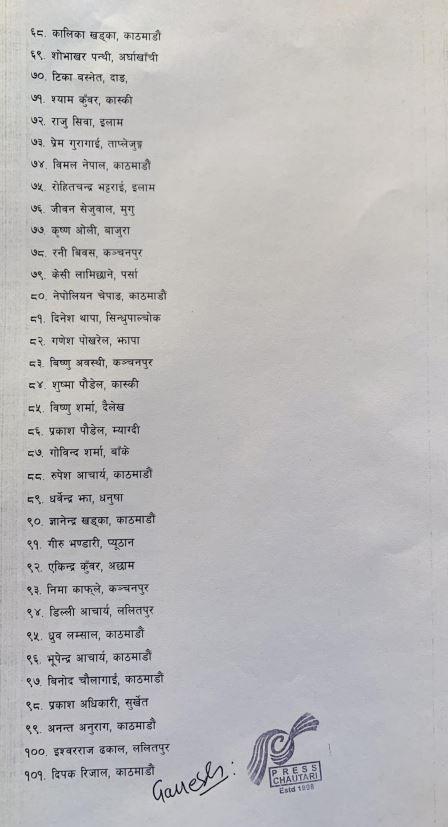 ६८. कालिका खड्का, काठमाडौं
६९. शोभाखर पन्थी, अर्घाखाँची
७०. टिका बस्नेत, दाङ,
७१. श्याम कुँवर, कास्की
७२. राजु सिवा, इलाम
७३. प्रेम गुरागाई, ताप्लेजुङ्ग
७४. विमल नेपाल, काठमाडौं
७५. रोहितचन्द्र भट्टराई, इलाम
७६. जीवन सेजुवाल, मुगु
७७. कृष्ण ओली, बाजुरा
७८. रनी बिवस, कञ्चनपुर
७९. केसी लामिछाने, पर्सा
८०. नेपोलियन चेपाङ, काठमाडौं
८१. दिनेश थापा, सिन्धुपाल्चोक
८२. गणेश पोखरेल, झापा
८३. बिष्णु अवस्थी, कञ्चनपुर
८४. शुष्मा पौडेल, कास्की
८५. विष्णु शर्मा, दैलेख
८६. प्रकाश पौडेल, म्याग्दी
८७. गोविन्द शर्मा, बाँके
८८. रुपेश आचार्य, काठमाडौं
८९. धर्वेन्द्र झा, धनुषा
९०. ज्ञानेन्द्र खड्का, काठमाडौं
९१. गीरु भण्डारी, प्यूठान
९२. एकिन्द्र कुँवर, अछाम
९३. निमा काफ्ले, कञ्चनपुर
९४. डिल्ली आचार्य, ललितपुर
९५. ध्रुव लम्साल, काठमाडौं
९६. भूपेन्द्र आचार्य, काठमाडौं
९७. बिनोद चौलागाई, काठमाडौं
९८. प्रकाश अधिकारी, सुर्खेत
९९. अनन्त अनुराग, काठमाडौं
१००. इश्वरराज ढकाल, ललितपुर
१०१. दिपक रिजाल, काठमाडौं
Ganesh:
PRESS
CHAUTARI
Estd 1998